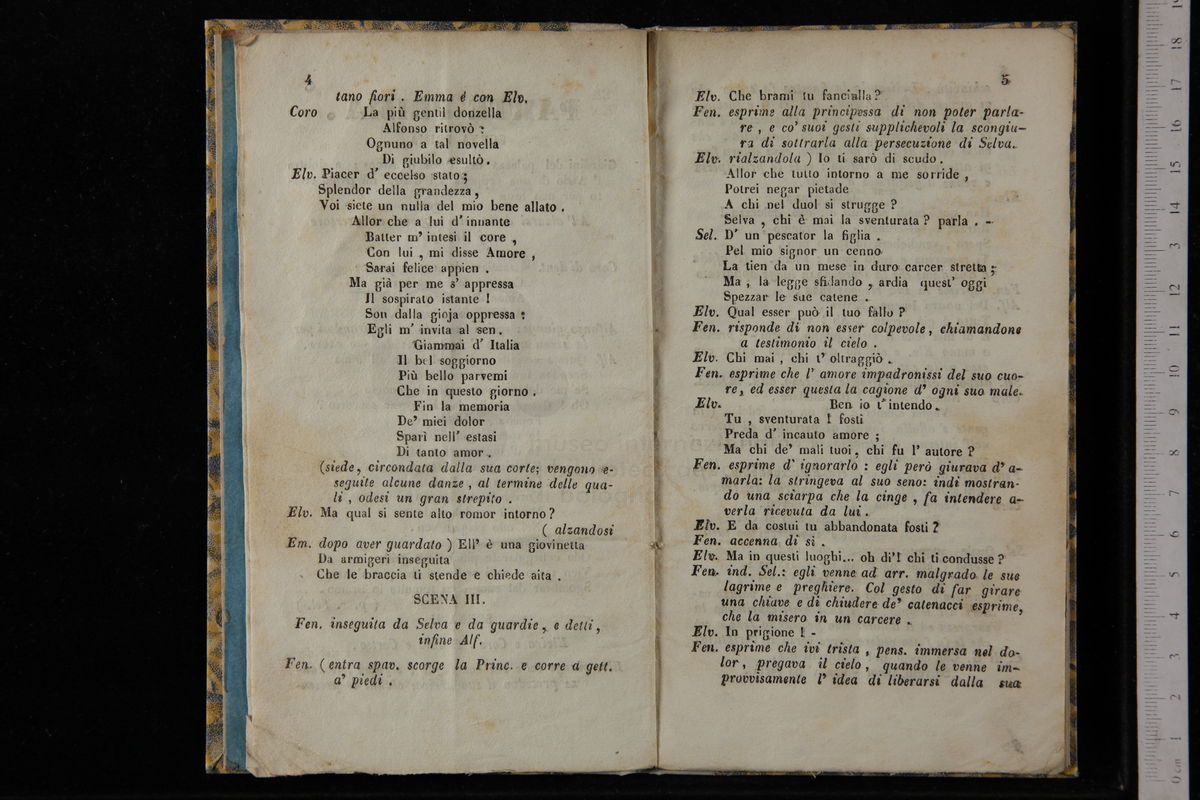 4
tano fiori . Emma é con Elv.
Coro La più gentil donzella
Alfonso ritrovò :
Ognuno a tal novella
Di giubilo esultò.
Elv. Piacer d' eccelso stato ;
Splendor della grandezza ,
Voi siete un nulla del mio bene allato .
Allor che a lui d' innante
Batter m' intesi il core ,
Con lui , mi disse Amore ,
Sarai felice appien .
Ma già per me s' appressa
Il sospirato istante !
Son dalla gioja oppressa :
Egli m' invita al sen .
Giammai d' Italia
Il bel soggiorno
Più bello parvemi
Che in questo giorno .
Fin la memoria
De' miei dolor
Sparì nell' estasi
Di tanto amor .
(siede, circondata dalla sua corte; vengono e-
seguite alcune danze , al termine delle qua-
li , odesi un gran strepito .
Elv. Ma qual si sente alto romor intorno ?
( alzandosi
Em. dopo aver guardato ) Ell' è una giovinetta
Da armigeri inseguita
Che le braccia ti stende e chiede aita .
SCENA III.
Fen. inseguita da Selva e da guardie , e detti ,
infine Alf.
Fen. ( entra spav. scorge la Princ. e corre a gett.
a' piedi .
5
Elv. Che brami tu fancialla ?
Fen. esprime alla principessa di non poter parla-
re , e co' suoi gesti supplichevoli la scongiu-
ra di sottrarla alla persecuzione di Selva.
Elv. rialzandola ) Io ti sarò di scudo .
Allor che tutto intorno a me sorride ,
Potrei negar pietade
A chi nel duol si strugge ?
Selva , chi è mai la sventurata ? parla . -
Sel. D' un pescator la figlia .
Pel mio signor un cenno
La tien da un mese in duro carcer stretta ;
Ma , la legge sfidando , ardia quest' oggi
Spezzar le sue catene .
Elv. Qual esser può il tuo fallo ?
Fen. risponde di non esser colpevole , chiamandone
a testimonio il cielo .
Elv. Chi mai , chi t' oltraggiò .
Fen. esprime che l' amore impadronissi del suo cuo-
re , ed esser questa la cagione d' ogni suo male.
Elv. Ben io t' intendo .
Tu , sventurata ! fosti
Preda d' incauto amore ;
Ma chi de' mali tuoi , chi fu l' autore ?
Fen. esprime d' ignorarlo : egli però giurava d' a-
marla: la stringeva al suo seno: indi mostran-
do una sciarpa che la cinge , fa intendere a-
verla ricevuta da lui .
Elv. E da costui tu abbandonata fosti ?
Fen. accenna di sì .
Elv. Ma in questi luoghi... oh di'! chi ti condusse ?
Fen. ind. Sel.: egli venne ad arr. malgrado le sue
lagrime e preghiere. Col gesto di far girare
una chiave e di chiudere de' catenacci esprime,
che la misero in un carcere .
Elv. In prigione ! -
Fen. esprime che ivi trista , pens. immersa nel do-
lor , pregava il cielo , quando le venne im-
provvisamente l' idea di liberarsi dalla sua